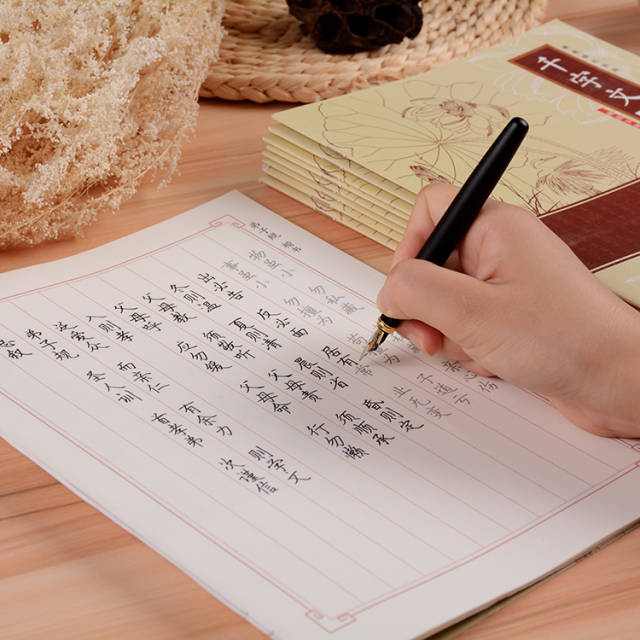 千字文
弟子规 楷书
总叙
弟子规 圣人训 首孝弟 次谨信
泛爱众 而亲仁 有余力 则学文
入则孝
父母呼 应勿缓 父母命 行勿懒
父母教 须敬听 父母责 须顺承
冬则温 夏则凊 晨则省 昏则定
出必告 反必面 居有常 业无变
事虽小 勿擅为 子道亏
物虽小 勿私藏